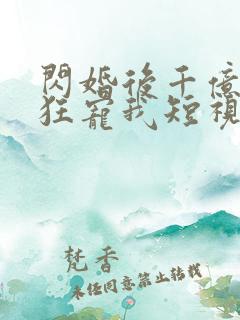 閃婚後千億
狂寵我短視
梵香
未经同意禁止转载